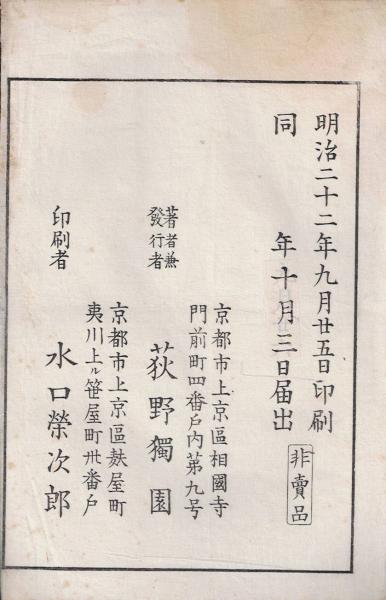 明治二十二年九月廿五日印刷
同年十月三日届出
非賣品
著者兼
發行者
京都市上京區相國寺
門前町四番戸内第九号
荻野獨園
印刷者
京都市上京區麩屋町
夷川上ル笹屋町卅番戸
水口榮次郎